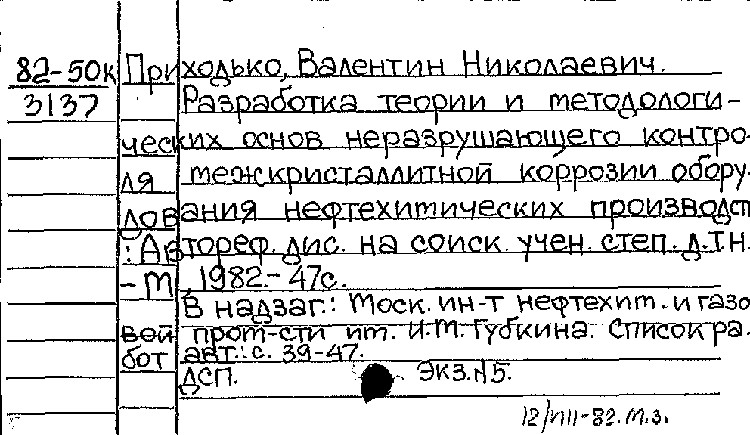 82-50к Приходько, Валентин Николаевич.
3137 Разработка теории и методологи-
ческих основ неразрушающего контро-
ля межкристаллитной коррозии обору-
дования нефтехимических производств
: Автореф. дис. на соиск. учен. степ. д.т.н.
- М., 1982.- 47с.
В надзаг.: Моск. ин-т нефтехим. и газо
вой пром-сти им. И.М. Губкина. Список ра.
бот авт.: с. 39-47.
ДСП. Экз.№5.
12/VIII-82. М.З.